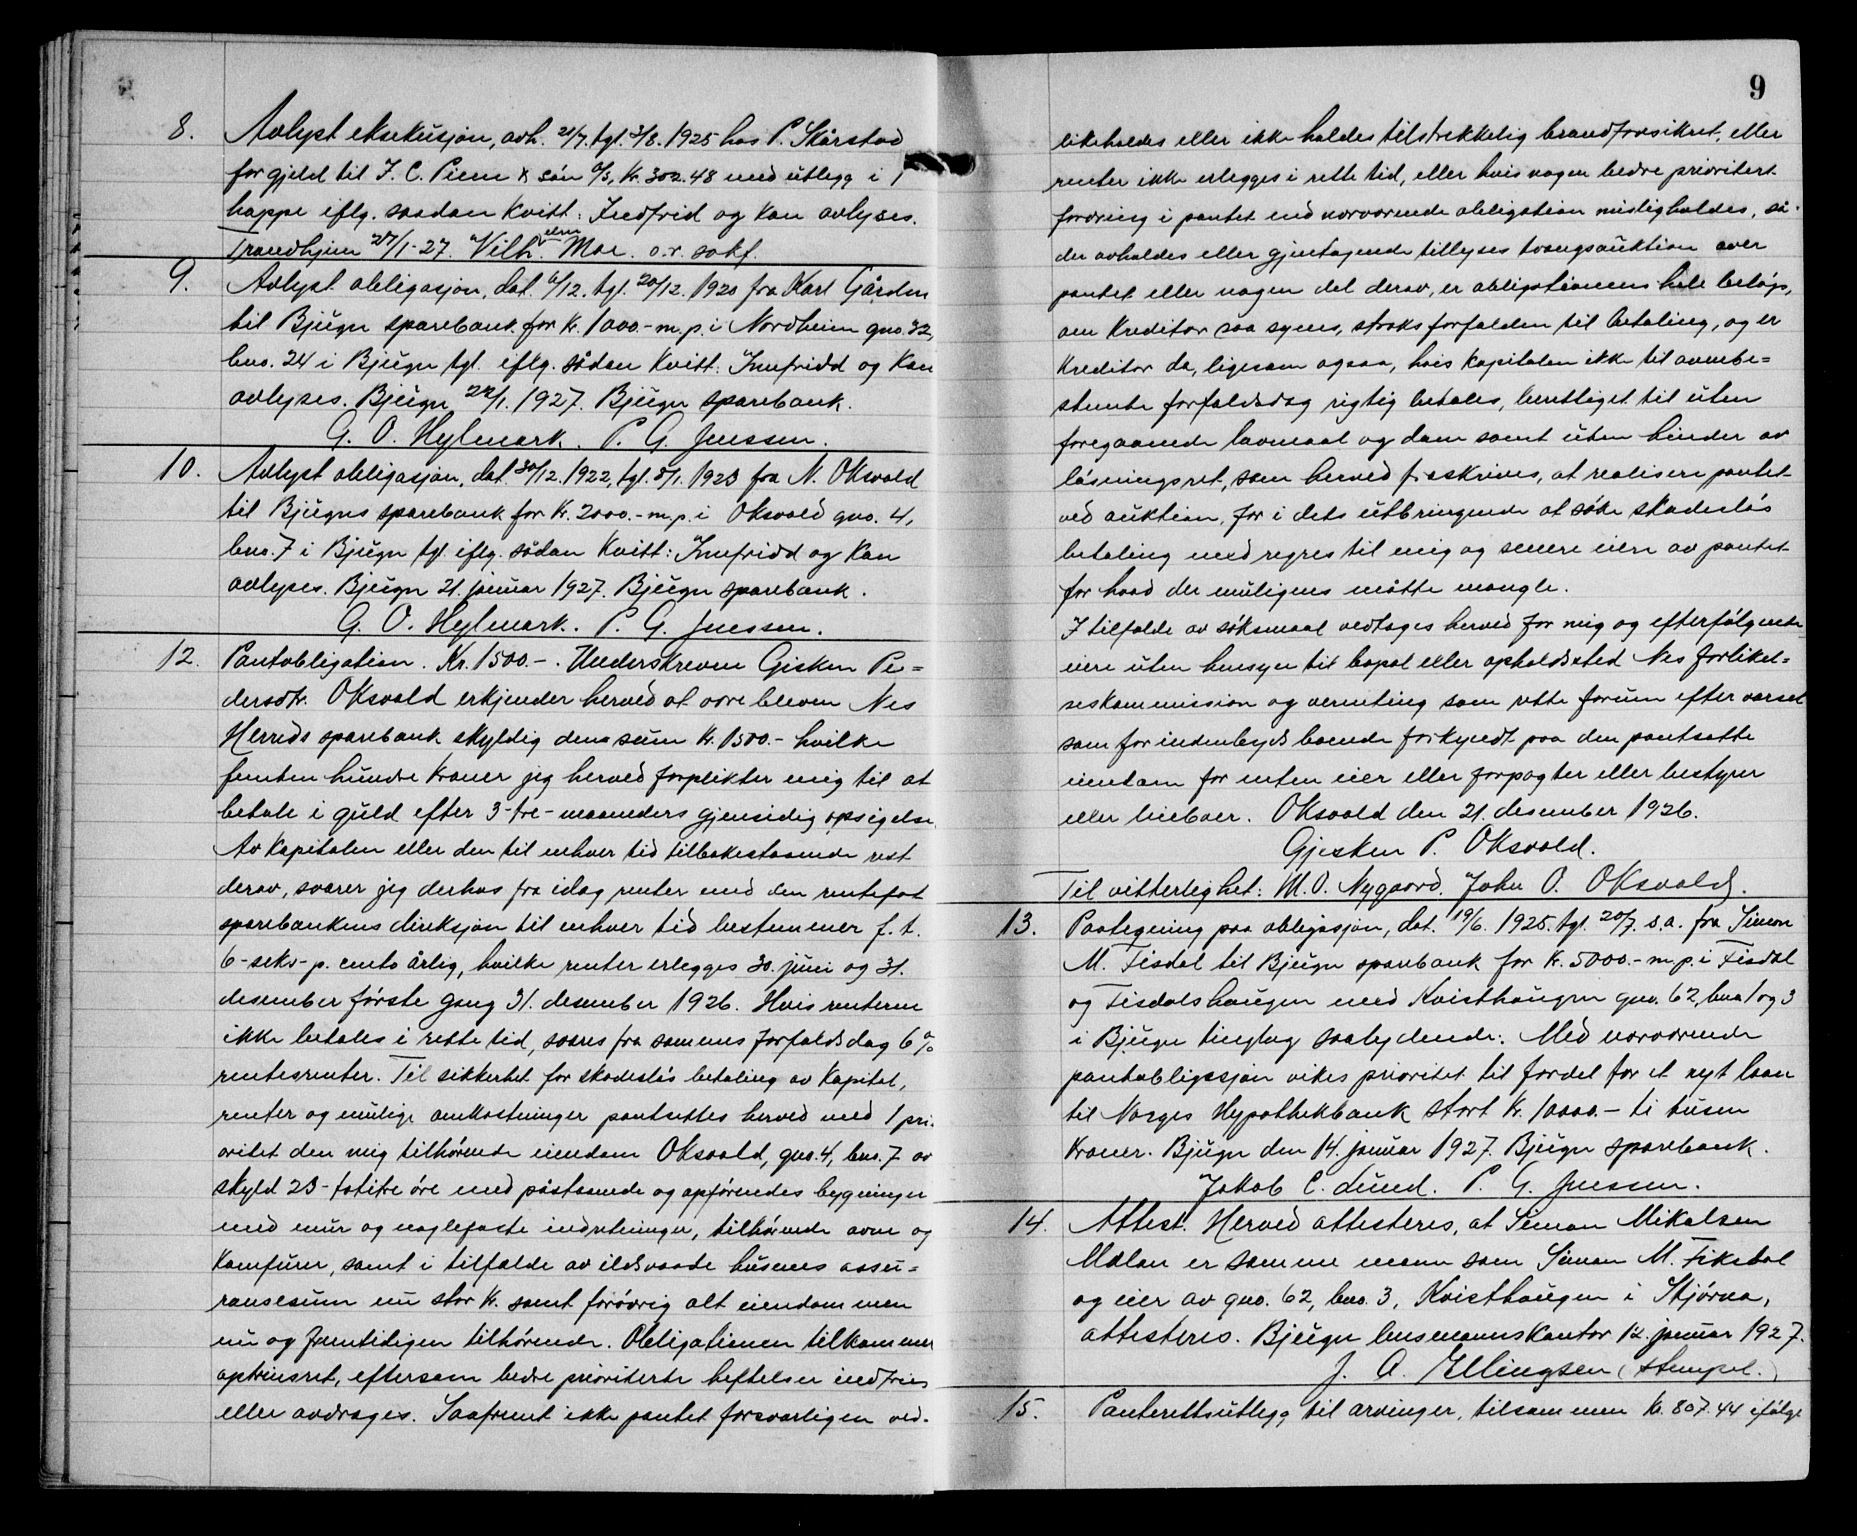 8. Avlyst eksekusjon, avh. 21/7. tgl. 3/8. 1925 hos P. Skårstad
for gjeld til I. C. Piene & søn A/S, Kr. 302.48 med utlegg i 1
hoppe iflg. saadan Kvitt: Indfrid og kan avlyses.
Trondhjem 27/1-27. Vilh. Moe. o.r. sakf.
9. Avlyst obligasjon, dat. 6/12. tgl. 20/12. 1920 fra Karl Gården
til Bjugn sparebank for Kr. 1000.- m. p. i Nordheim gno. 32,
bno. 24 i Bjugn tgl. iflg. sådan Kvitt: Innfridd og kan
avlyses. Bjugn 22/1. 1927. Bjugn sparebank.
G. O. Hylmark. P. G. Jenssen.
10. Avlyst obligasjon, dat. 30/12. 1922, tgl. 5/1. 1923 fra N. Oksvold
til Bjugn sparebank for Kr. 2000.- m. p. i Oksvold gno. 4,
bno. 7 i Bjugn tgl. iflg. sådan Kvitt: Innfridd og kan
avlyses. Bjugn 21. januar 1927. Bjugn sparebank.
G. O. Hylmark. P. G. Jenssen.
12. Pantobligation. Kr. 1500.-. Underskreven Gjesken Pe=
dersdtr. Oksvold erkjender herved at være bleven Nes
Herreds sparebank skyldig den sum Kr. 1500.- hvilke
femten hundre kroner jeg herved forplikter mig til at
betale i guld efter 3-tre-maaneders gjensidig opsigelse.
Av kapitalen eller den til enhver tid tilbakestaaende rest
derav, svarer jeg derhos fra idag renter med den rentefot
sparebankens direksjon til enhver tid bestemmer f. t.
6-seks-p. cento årlig, hvilke renter erlegges 30. juni og 31.
desember første gang 31. desember 1926. Hvis renterne
ikke betales i rette tid, svares fra sammes forfaldsdag 6 %
rentesrenter. Til sikkerhet for skadesløs betaling av kapital,
renter og mulige omkostninger pantsettes herved med 1 pri.
oritet den mig tilhørende eiendom Oksvold, gno. 4, bno. 7 av
skyld 23-totitre øre med påstaaende og opførendes bygninger
med mur og naglefaste indretninger, tilhørende ovne og
komfurer, samt i tilfælde av ildsvaade husenes assu=
ransesum nu stor Kr. samt forøvrig alt eiendommen
nu og fremtidigen tilhørende. Obligationen tilkommer
optrinsret, eftersom bedre prioriterte heftelser indfries
eller avdrages. Saafremt ikke pantet forsvarligen ved-
9
likeholdes eller ikke holdes tilstrekkelig brandforsikret, eller
renter ikke erlegges i rette tid, eller hvis nogen bedre prioritert
fordring i pantet end nærværende obligation misligholdes, så
der avholdes eller gjentagende tillyses tvangsauktion over
pantet eller nogen del derav, er obligationens hele beløp,
om kreditor saa synes, straks forfalden til betaling, og er
kreditor da, ligesom ogsaa, hvis kapitalen ikke til ovenbe=
stemte forfaldsdag rigtig betales, berettiget til uten
foregaaende lovmaal og dom samt uten hinder av
løsningsret, som herved fraskrives, at realisere pantet
ved auktion, for i dets utbringende at søke skadesløs
betaling med regres til mig og senere eiere av pantet
for hvad der muligens måtte mangle.
I tilfælde av søksmaal vedtages herved for mig og efterfølgende
eiere uten hensyn til bopæl eller opholdssted Nes forlikel=
seskommission og vernting som rette forum efter varsel
som for indenbyds boende forkyndt paa den pantsatte
eiendom for enten eier eller forpagter eller bestyrer
eller beboer. Oksvold den 21. desember 1926.
Gjesken P. Oksvold.
Til vitterlighet: M. O. Nygaard. John O. Oksvold.
13. Paategning paa obligasjon, dat. 19/6. 1925. tgl. 20/7. s.a. fra Simon
M. Fisdal til Bjugn sparebank for Kr. 5000.- m. p. i Fisdal
og Fisdalshaugen med Kvisthaugen gno. 62, bno 1 og 3
i Bjugn tinglag saalydende: Med nærværende
pantobligasjon vikes prioritet til fordel for et nyt laan
til Norges Hypothekbank stort Kr. 10000.- ti tusen
kroner. Bjugn den 14. januar 1927. Bjugn sparebank.
Jakob C. Lund. P. G. Jenssen.
14. Attest. Herved attesteres, at Simon Mikalsen
Mælan er samme mann som Simon M. Fiksdal
og eier av gno. 62, bno. 3, Kvisthaugen i Stjørna,
attesteres. Bjugn lensmannskontor 12. januar 1927.
J. A. Ellingsen (stempel.)
15. Panterettsutlegg til arvinger, tilsammen Kr. 807.44 ifølge